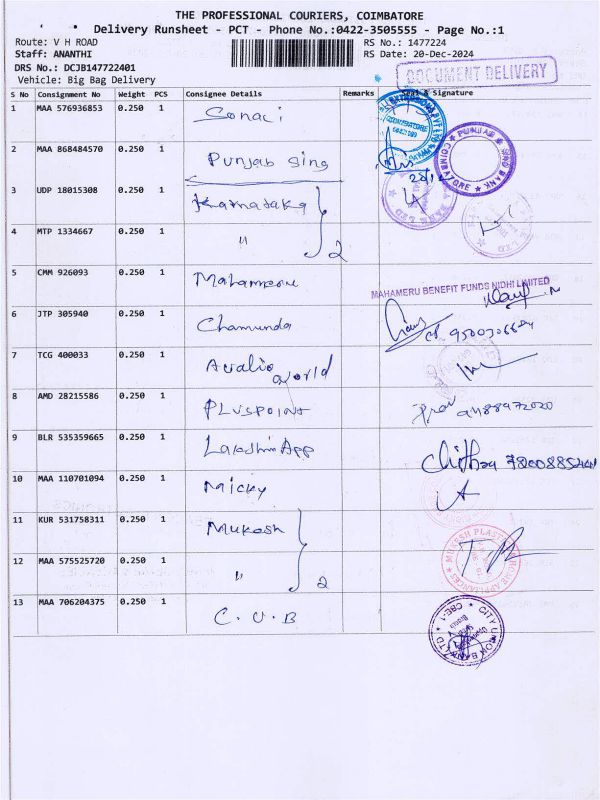 THE PROFESSIONAL COURIERS, COIMBATORE
Delivery Runsheet - PCT - Phone No.:0422-3505555 - Page No.:1
Route: V H ROAD RS No.: 1477224
Staff: ANANTHI RS Date: 20-Dec-2024
DRS No.: DCJB147722401
Vehicle: Big Bag Delivery
DOCUMENT DELIVERY
S No Consignment No Weight PCS Consignee Details Remarks & Signature
1 MAA 576936853 0.250 1 Sonaci
COIMBATORE
2 MAA 868484570 0.250 1 Punjab Sing
PUNJAB & SIND BANK COIMBATORE
3 UDP 18015308 0.250 1 Karnataka
4 MTP 1334667 0.250 1 " 2
5 CMM 926093 0.250 1 Mahameru
MAHAMERU BENEFIT FUNDS NIDHI LIMITED
6 JTP 305940 0.250 1 Chamunda
7 TCG 400033 0.250 1 Audio world
8 AMD 28215586 0.250 1 PLUSPOINT
9 BLR 535359665 0.250 1 Lakshmi App Chithra
10 MAA 110701094 0.250 1 Micky
11 KUR 531758311 0.250 1 Mukesh
12 MAA 575525720 0.250 1 " 2
13 MAA 706204375 0.250 1 C.U.B
CITY UNION BANK LTD CBE-1